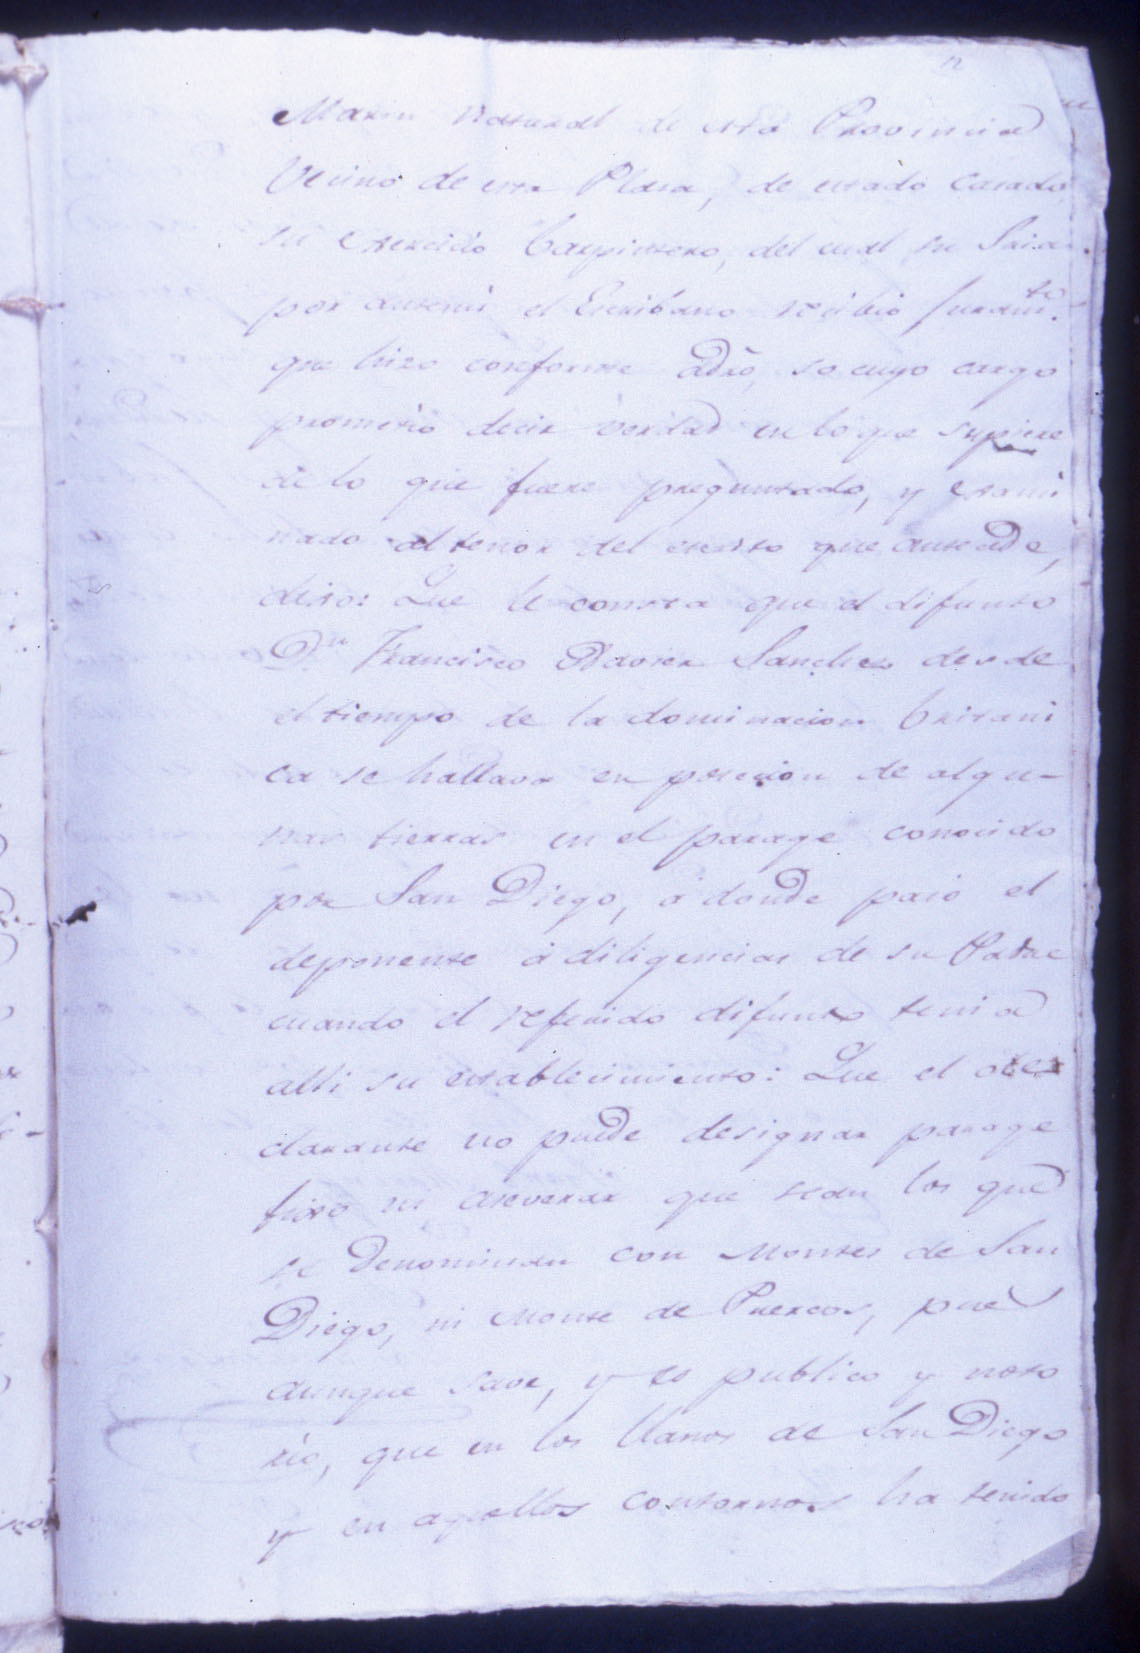 12
Marin natural de esta Provincia
Vecino de esta Plasa, de estado Casado
su exercicio Carpintero, del cual su Sria.
por antemi el Escribano recibio juramto.
que hizo conforme adro, so cuyo cargo
prometio decir verdad en lo que supiere
de lo que fuere preguntado, y exami
nado al tenor del escrito que antecede,
dixo: Que le consta que el difunto
Dn Francisco Xavier Sanches desde
el tiempo de la dominacion britani
ca se hallava en posecion de algu-
nas tierras en el parage conocido
por San Diego, a donde paso el
deponente á diligencias de su Padre
cuando el referido difunto tenia
alli su establecimiento: Que el de
clarante no puede designar parage
fixo ni aseverar que sean los que
se denominan con Montes de San
Diego, ni Monte de Puercos, pues
aunque save, y es publico y noto
rio, que en los llanos de San Diego
y en aquellos contornos ha tenido